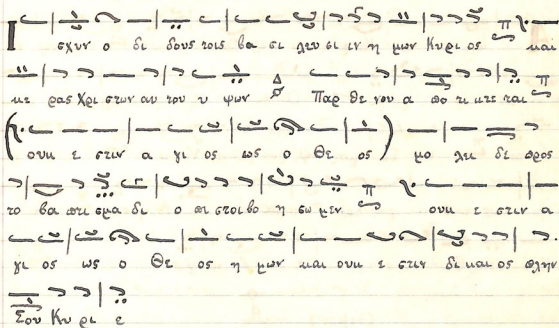 Ι σχυν ο δι δους τοις βα σι λευ σι ιν η μων Κυ ρι ος π και
κε ρας Χρι στων αυ του υ ψων Δ Παρ θε νου α πο τι κτε ται π
(ουκ ε στιν α γι ος ως ο Θε ος) μο λει δε προς
το βα πτι σμα δι ο πι στοι βο η σω μεν π ουκ ε στιν α
γι ος ως ο Θε ος η μων και ουκ ε στιν δι και ος πλην
Σου Κυ ρι ε